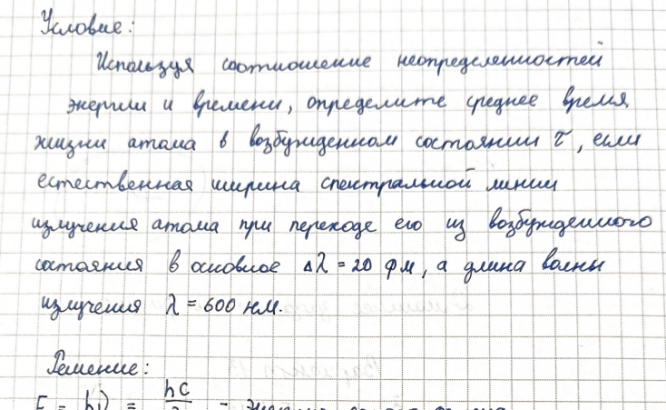 Условие:
Используя соотношение неопределенностей
энергии и времени, определите среднее время
жизни атома в возбужденном состоянии τ, если
естественная ширина спектральной линии
излучения атома при переходе его из возбужденного
состояния в основное Δλ = 20 фм, а длина волны
излучения λ = 600 нм.
Решение:
E = hν = hc